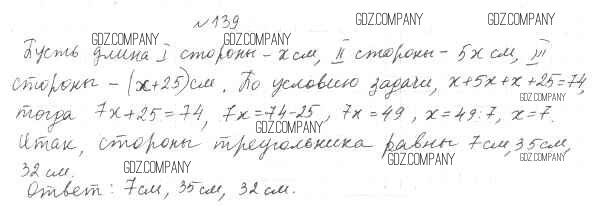 №139
GDZ.COMPANY GDZ.COMPANY
GDZ.COMPANY GDZ.COMPANY
Пусть длина I стороны - x см, II стороны - 5x см, III
стороны - (x+25) см. По условию задачи, x+5x+x+25=74,
GDZ.COMPANY
тогда 7x+25=74, 7x=74-25, 7x=49, x=49:7, x=7.
GDZ.COMPANY
Итак, стороны треугольника равны 7 см, 35 см,
GDZ.COMPANY GDZ.COMPANY GDZ.COMPANY
32 см.
Ответ: 7 см, 35 см, 32 см.